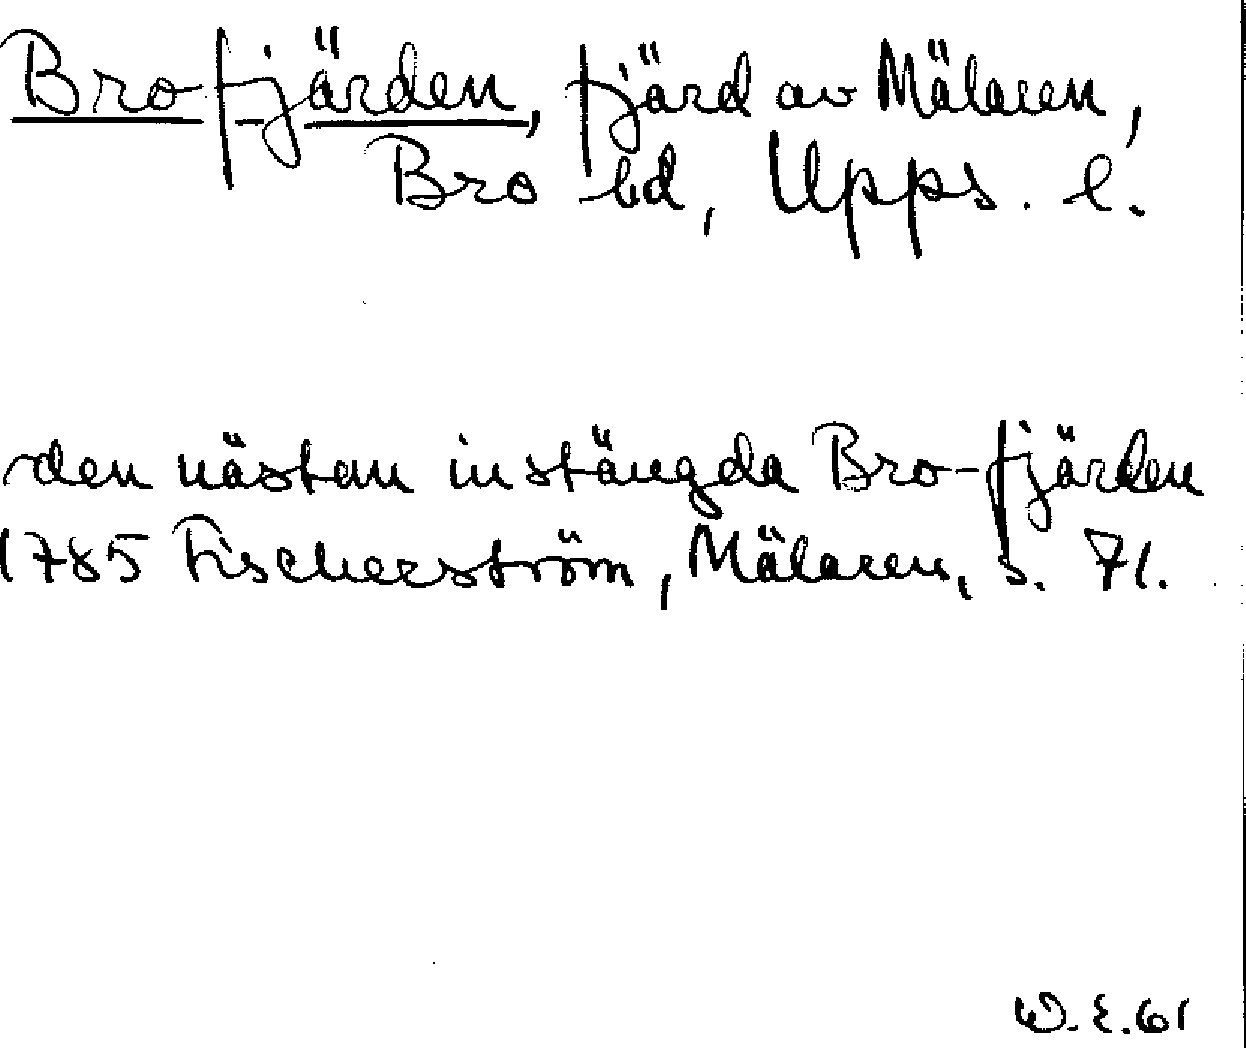 Bro-fjärden, fjärd av Mälaren,
Bro hd, Upps. l.
den nästan instängda Bro-fjärden
1785 Fischerström, Mälaren, s. 71.
W. E. 61